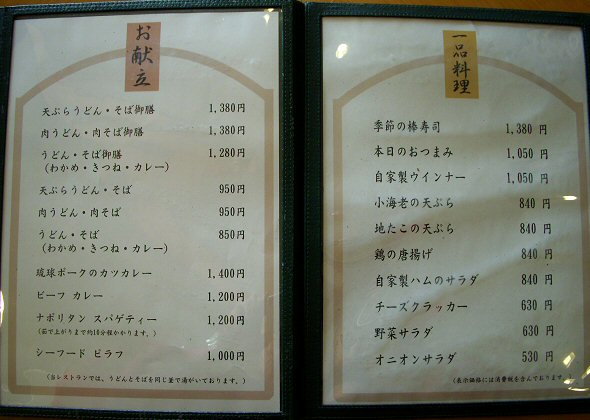 お献立
天ぷらうどん・そば御膳 1,380円
肉うどん・肉そば御膳 1,380円
うどん・そば御膳 1,280円
(わかめ・きつね・カレー)
天ぷらうどん・そば 950円
肉うどん・肉そば 950円
うどん・そば 850円
(わかめ・きつね・カレー)
琉球ポークのカツカレー 1,400円
ビーフ カレー 1,200円
ナポリタン スパゲティー 1,200円
(茹で上がりまで約10分程かかります。)
シーフード ピラフ 1,000円
(当レストランでは、うどんとそばを同じ釜で湯がいております。)
一品料理
季節の棒寿司 1,380 円
本日のおつまみ 1,050 円
自家製ウインナー 1,050 円
小海老の天ぷら 840 円
地たこの天ぷら 840 円
鶏の唐揚げ 840 円
自家製ハムのサラダ 840 円
チーズクラッカー 630 円
野菜サラダ 630 円
オニオンサラダ 530 円
(表示価格には消費税を含んでおります。)